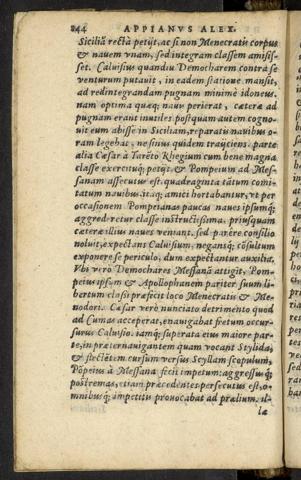 244 APPIANVS ALEX.
Siciliã rectà petijt, ac si non Menecratis corpus
& nauem vnam, sed integram classem amisis-
set. Caluisius quandiu Democharem contra se
venturum putauit, in eadem statione mansit,
ad redintegrandam pugnam minimè idoneus.
nam optima quæq; nauis perierat, cæteræ ad
pugnam erant inutiles. postquam autem cogno-
uit eum abisse in Siciliam, reparatis nauibus o-
ram legebat, ne sinus quidem traijciens. parte
alia Cæsar à Tarẽto Rhegium cum bene magna
classe exercituq; petijt, & Pompeium ad Mes-
sanam assecutus est. quadraginta tãtum comi-
tatum nauibus. itaq; amici hortabantur, vt per
occasionem Pompeianas paucas naues ipsumq;
aggrederetur classe instructissima, priusquam
cæteræ illius naues veniant. sed parere consilio
noluit, expectans Caluisium, negansq; cõsultum
exponere se periculo, dum expectantur auxilia.
Vbi verò Demochares Messanã attigit, Pom-
peius ipsum & Apollophanem pariter suum li-
bertum classi præfecit loco Menecratis & Me-
nodori. Cæsar verò nunciato detrimento quod
ad Cumas acceperat, enauigabat fretum occur-
surus Caluisio. iamq; superata eius maiore par-
te, in præternauigantem quam vocant Stylida,
& flectẽtem cursum versus Scyllam scopulum,
Põpeius à Messana fecit impetum: aggressusq;
postremas, etiam præcedentes persecutus est, o-
mnibusq; impetitis prouocabat ad prælium. il-
læ